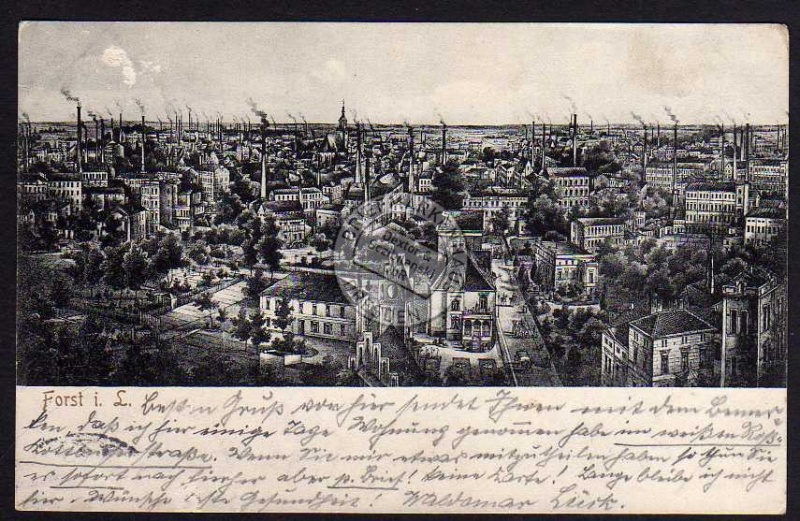 Forst i. L. Besten Gruß von hier sendet Ihnen mit dem Bemer-
ken, daß ich hier einige Tage Wohnung genommen habe im weißen Roß,
Kottbuserstraße. Wenn Sie mir etwas mitzuteilen haben so thun Sie
es sofort nach hierher aber p. Brief! keine Carte! Lange bleibe ich nicht
hier. Wünsche beste Gesundheit! Waldemar